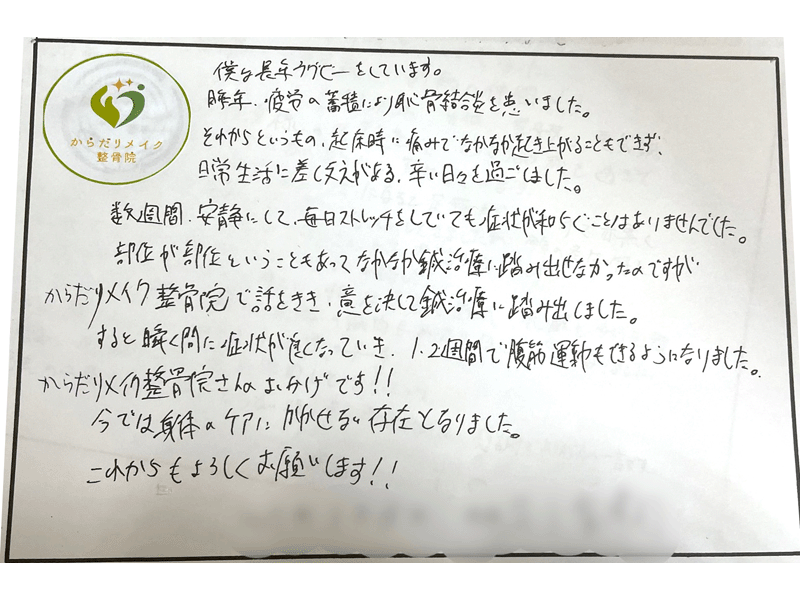 からだリメイク
整骨院
僕は長年ラグビーをしています。
昨年、疲労の蓄積により恥骨結合炎を患いました。
それからというもの、起床時に痛みでなかなか起き上がることもできず、
日常生活に差し支えがある、辛い日々を過ごしました。
数週間、安静にして、毎日ストレッチをしていても症状が和らぐことはありませんでした。
部位が部位ということもあってなかなか鍼治療に踏み出せなかったのですが
からだリメイク整骨院で話をきき、意を決して鍼治療に踏み出しました。
すると瞬く間に症状が良くなっていき、1.2週間で腹筋運動もできるようになりました。
からだリメイク整骨院さんのおかげです!!
今では身体のケアにかかせない存在となりました。
これからもよろしくお願いします!!